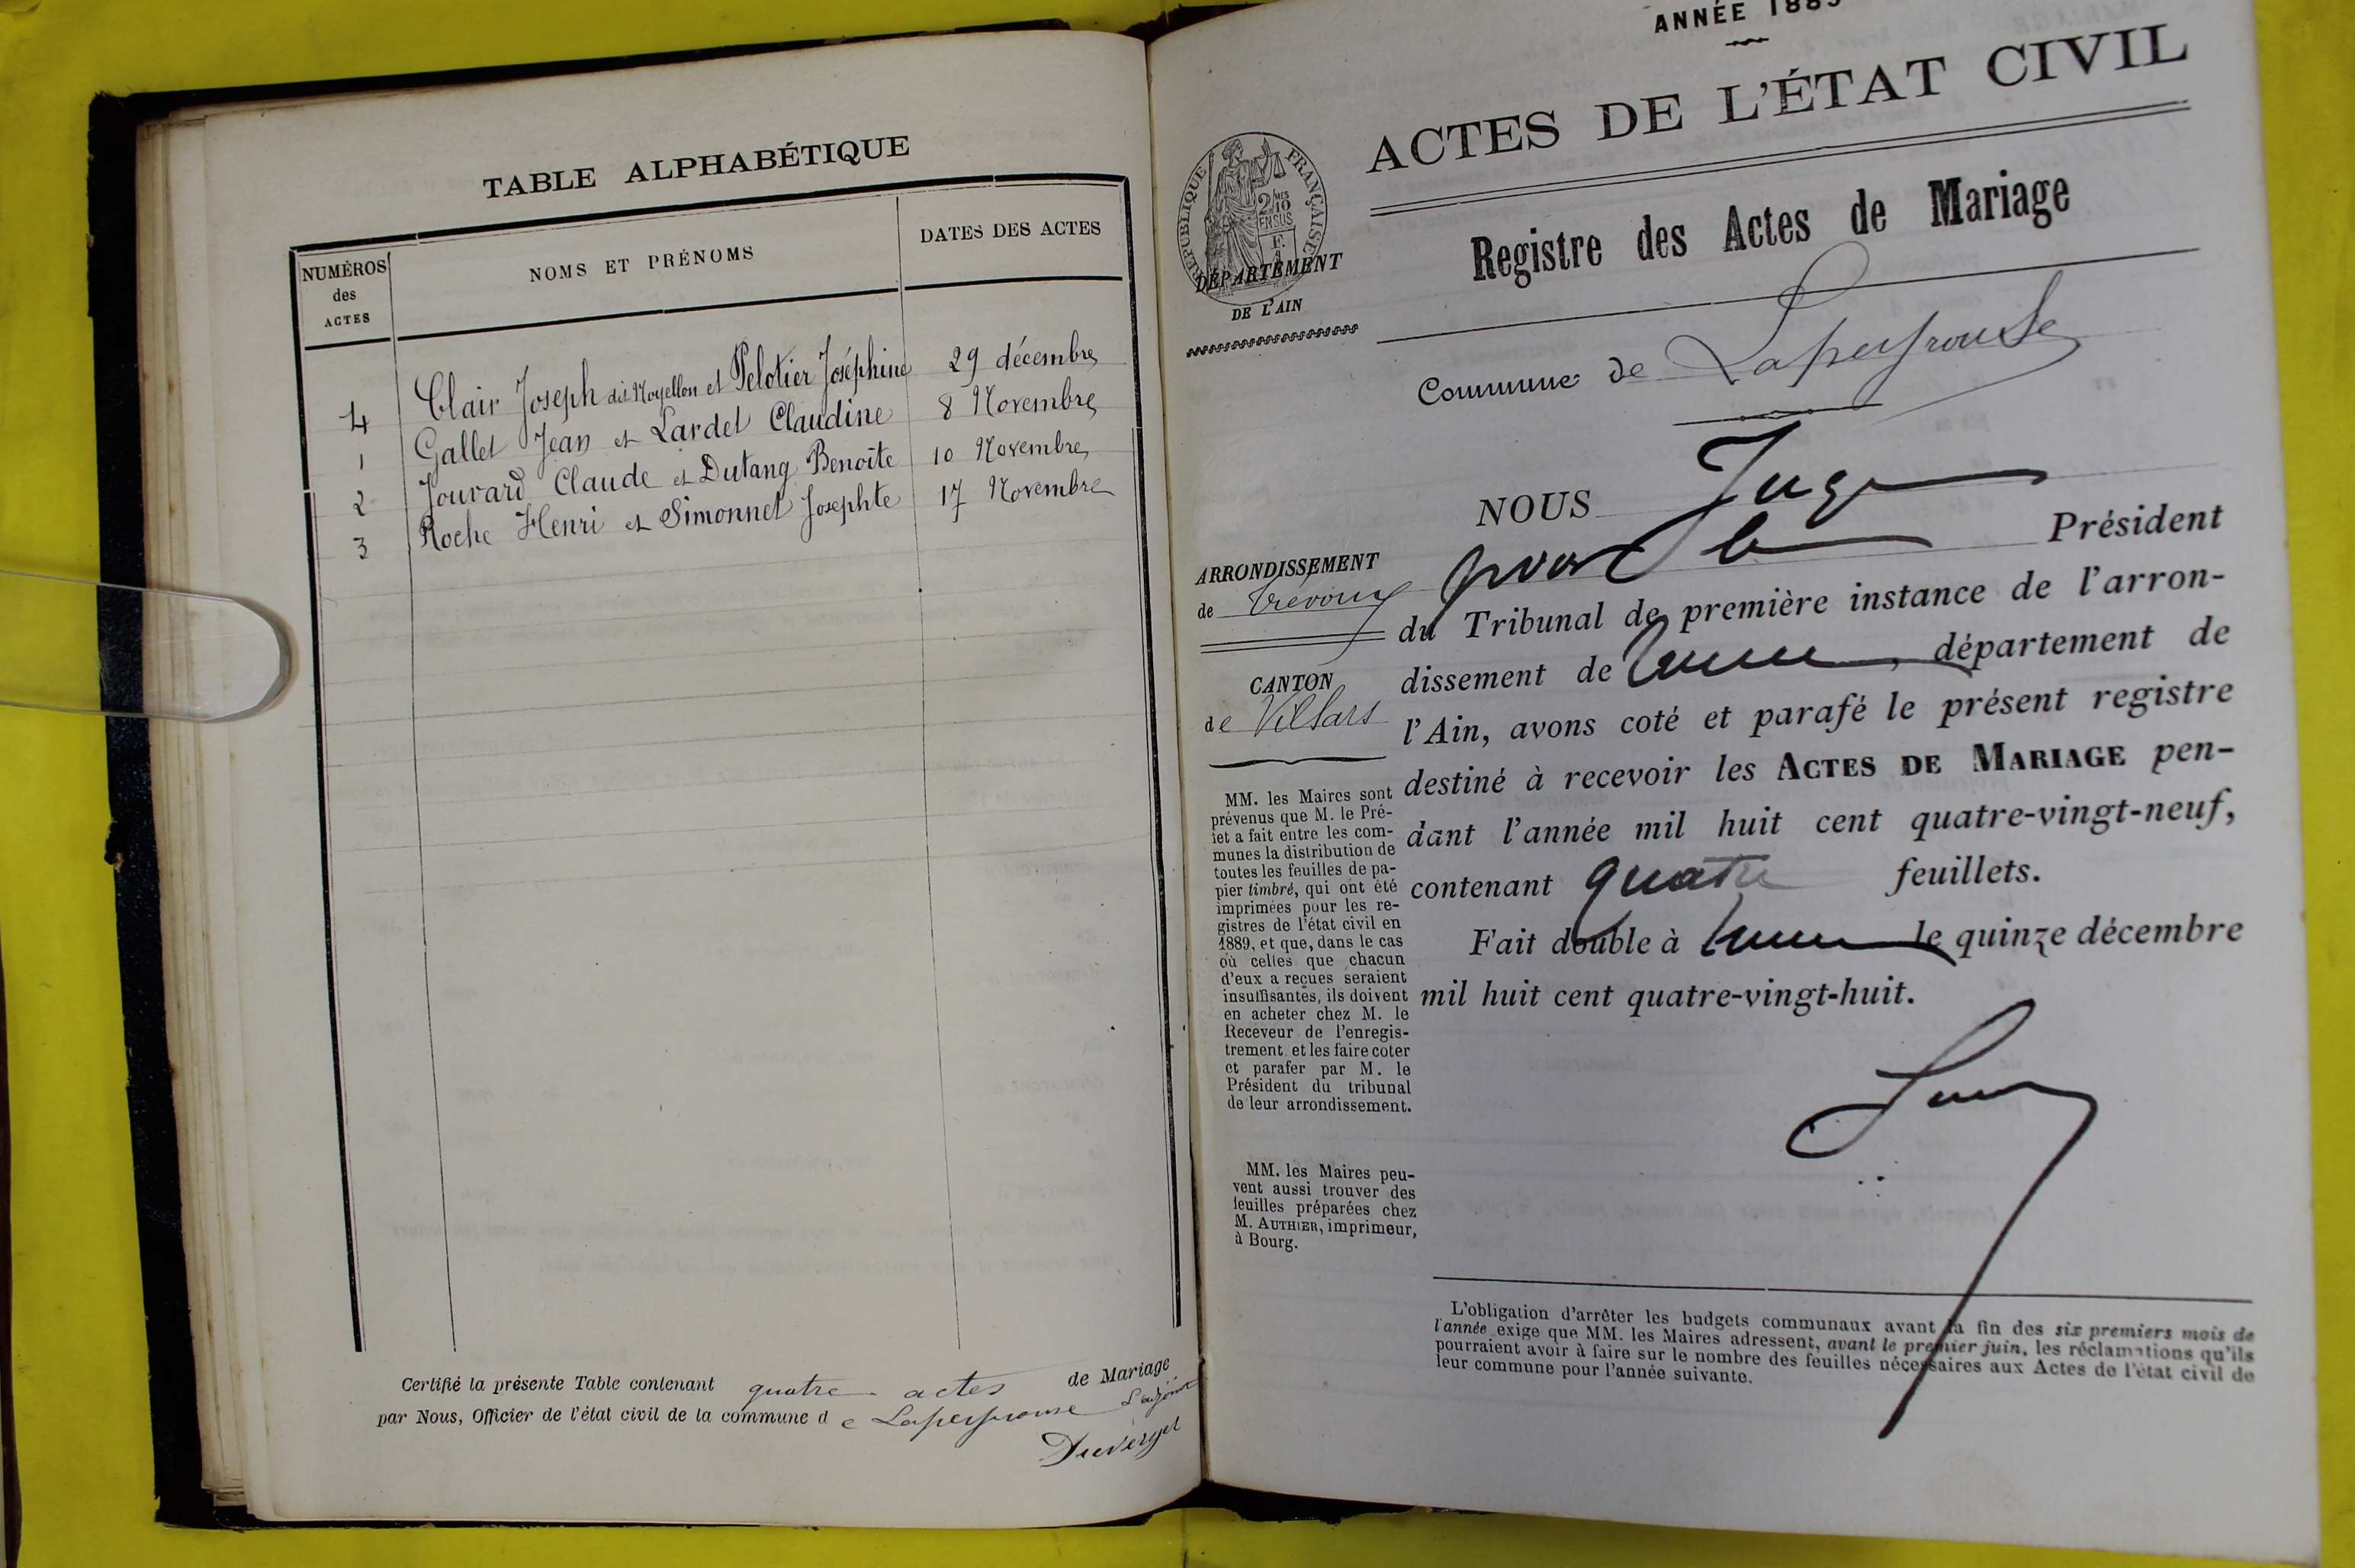 TABLE ALPHABÉTIQUE
NUMÉROS
des
ACTES
NOMS ET PRÉNOMS
DATES DES ACTES
4 Clair Joseph dit Noyellon et Pelotier Joséphine 29 décembre
1 Gallet Jean et Lardet Claudine 8 Novembre
2 Jouvard Claude et Dutang Benoîte 10 Novembre
3 Roche Henri et Simonnet Josephte 17 Novembre
Certifié la présente Table contenant quatre actes de Mariage
par Nous, Officier de l'état civil de la commune d e Lapeyrouse L'adjoint
Duverger
ANNÉE 1889
ACTES DE L'ÉTAT CIVIL
RÉPUBLIQUE FRANÇAISE
2/10
EN SUS
DÉPARTEMENT
DE L'AIN
Registre des Actes de Mariage
Commune de Lapeyrouse
ARRONDISSEMENT
de Trévoux
CANTON
de Villars
MM. les Maires sont
prévenus que M. le Pré-
fet a fait entre les com-
munes la distribution de
toutes les feuilles de pa-
pier timbré, qui ont été
imprimées pour les re-
gistres de l'état civil en
1889, et que, dans le cas
où celles que chacun
d'eux a reçues seraient
insuffisantes, ils doivent
en acheter chez M. le
Receveur de l'enregis-
trement et les faire coter
et parafer par M. le
Président du tribunal
de leur arrondissement.
MM. les Maires peu-
vent aussi trouver des
feuilles préparées chez
M. AUTHIER, imprimeur,
à Bourg.
NOUS Juge
pour le Président
du Tribunal de première instance de l'arron-
dissement de Trévoux, département de
l'Ain, avons coté et parafé le présent registre
destiné à recevoir les ACTES DE MARIAGE pen-
dant l'année mil huit cent quatre-vingt-neuf,
contenant quatre feuillets.
Fait double à Trévoux le quinze décembre
mil huit cent quatre-vingt-huit.
L'obligation d'arrêter les budgets communaux avant la fin des six premiers mois de
l'année exige que MM. les Maires adressent, avant le premier juin, les réclamations qu'ils
pourraient avoir à faire sur le nombre des feuilles nécessaires aux Actes de l'état civil de
leur commune pour l'année suivante.